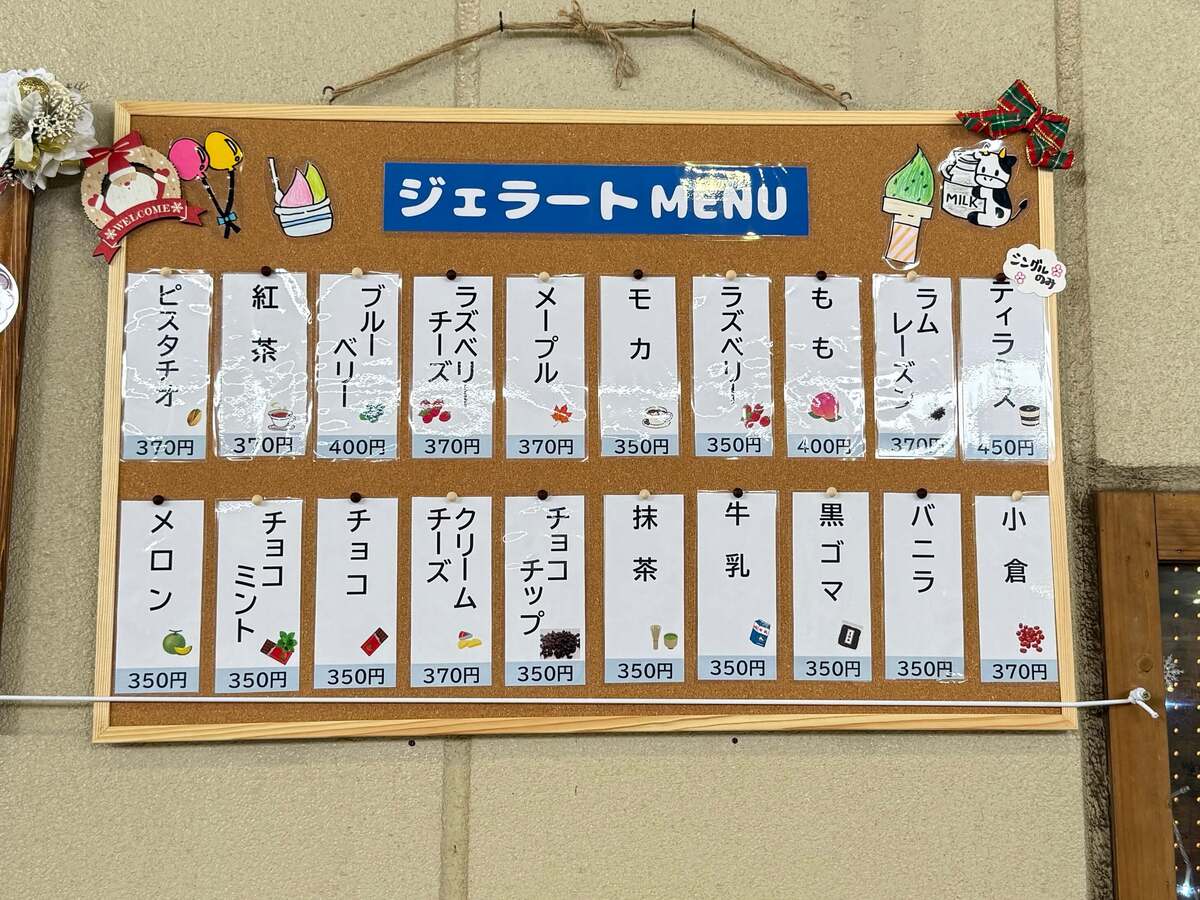 ジェラートMENU
WELCOME
MILK
シングル
のみ
ティラミス
450円
ラム
レーズン
370円
もも
400円
ラズベリー
350円
モカ
350円
メープル
370円
ラズベリー
チーズ
370円
ブルー
ベリー
400円
紅茶
370円
ピスタチオ
370円
小倉
370円
バニラ
350円
黒ゴマ
350円
牛乳
350円
抹茶
350円
チョコ
チップ
350円
クリーム
チーズ
370円
チョコ
350円
チョコ
ミント
350円
メロン
350円